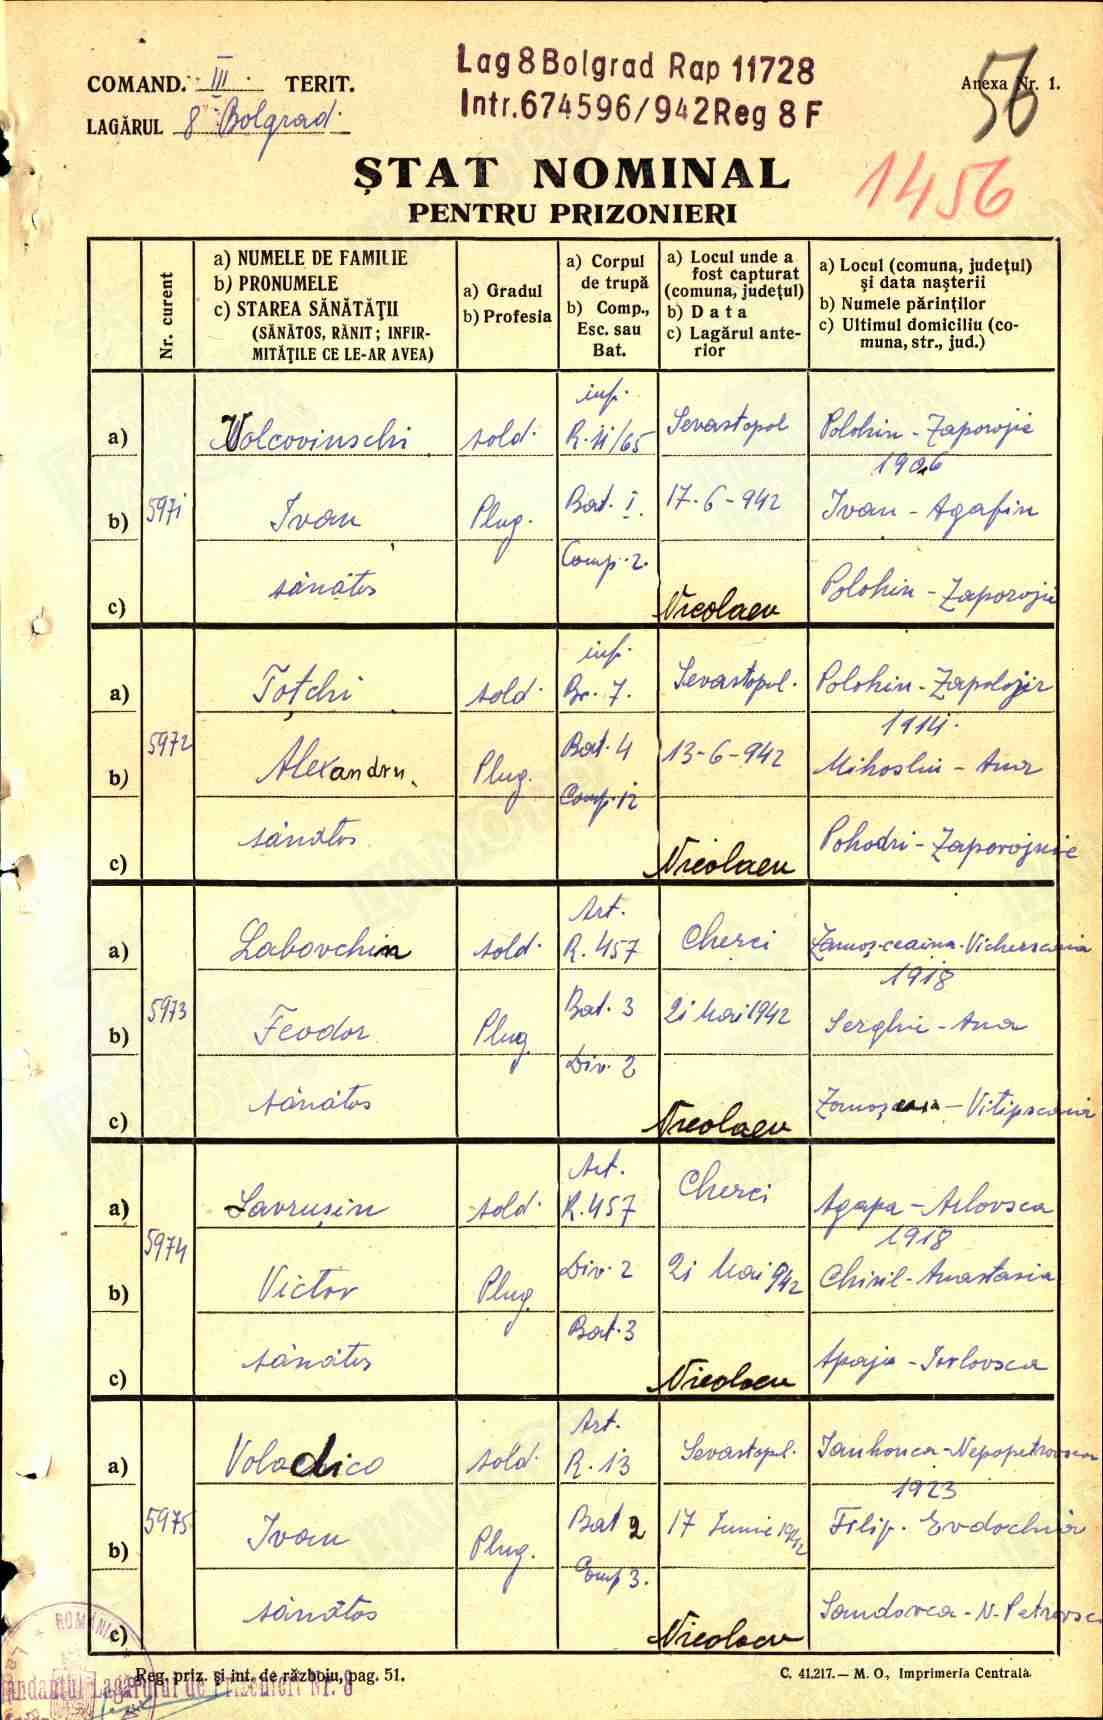 COMAND. III TERIT.
LAGĂRUL 8 Bolgrad.
Lag 8 Bolgrad Rap 11728
Intr. 674596/942 Reg 8 F
Anexa Nr. 1.
56
1456
ȘTAT NOMINAL
PENTRU PRIZONIERI
Nr. curent
a) NUMELE DE FAMILIE
b) PRONUMELE
c) STAREA SĂNĂTĂȚII
(SĂNĂTOS, RĂNIT; INFIR-
MITĂȚILE CE LE-AR AVEA)
a) Gradul
b) Profesia
a) Corpul
de trupă
b) Comp.,
Esc. sau
Bat.
a) Locul unde a
fost capturat
(comuna, județul)
b) Data
c) Lagărul ante-
rior
a) Locul (comuna, județul)
și data nașterii
b) Numele părinților
c) Ultimul domiciliu (co-
muna, str., jud.)
5971
a) Volcovinschi sold. inf. R. 11/65 Sevastopol Polohin - Zaporojie
1906
b) Ivan Plug. Bat. I. 17-6-942 Ivan - Agafin
Comp. 2.
c) sănătos Nicolaev Polohin - Zaporojie
5972
a) Toțchi sold. inf. Br. 7. Sevastopol. Polohin - Zapolojir
1914.
b) Alexandru Plug. Bat. 4 13-6-942 Mihoslin - Ana
Comp. 12
c) sănătos Nicolaev Pohodri - Zaporojnie
5973
a) Labovchin sold. Art. R. 457 Cherci
1918
b) Feodor Plug. Bat. 3 21 Mai 1942 Serghie - Ana
Div. 2
c) sănătos Nicolaev
5974
a) Lavrușin sold. Art. R. 457 Cherci Agapa - Arlovsca
1918
b) Victor Plug. Div. 2 21 Mai 942 Chiril - Anastasia
Bat. 3
c) sănătos Nicolaev Apaja - Iorlovsca
5975
a) Voladico sold. Art. R. 13 Sevastopl. Ianhonca - Nepopetrovsca
1923
b) Ivan Plug. Bat 2 17 Iunie 1942 Filip. Evdochia
Comp 3.
c) sănătos Nicolaev Sandovca - N. Petrovsc
ROMÂNIA
Comandantul Lagărului de Prizonieri Nr. 8
Reg. priz. și int. de războiu, pag. 51.
C. 41.217. — M. O., Imprimeria Centrală.